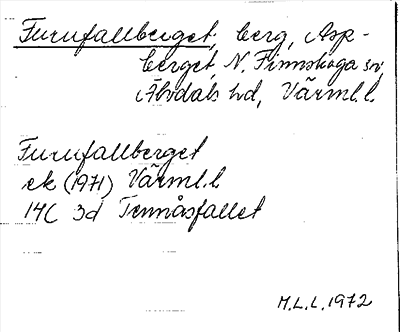 Furufallberget, berg, Asp-
berget, N. Finnskoga sn,
Älvdals hd, Värml. l.
Furufallberget
ek (1971) Värml. l
14C 3d Tennåsfallet
M.L.L. 1972